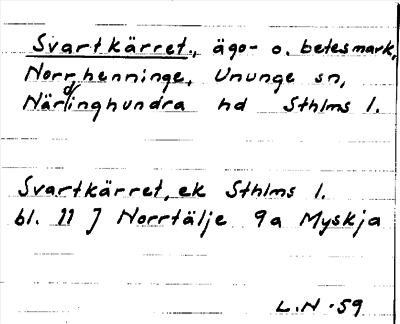 Svartkärret., ägo- o. betesmark,
Norrhenninge, Ununge sn,
Närdinghundra hd Sthlms l.
Svartkärret, ek Sthlms l.
bl. 11 J Norrtälje 9a Myskja
L.N -59